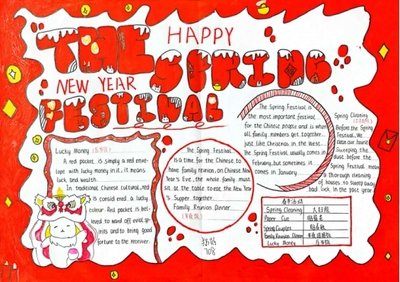 HAPPY
THE SPRING
NEW YEAR
FESTIVAL
Lucky Money
A red pocket is simply a red enve-
lope with lucky money in it, it means
luck and wealth.
In traditional Chinese cultural, red
is considered a lucky
colour. Red pocket is be-
lieved to ward off evil spi-
rits and to bring good
fortune to the moment.
The Spring Festival
is a time for the Chinese to
home family reunion, on Chinese New
Year's Eve, the whole family must
sit at the table to eat the New Year
Supper together.
Family Reunion Dinner
The Spring Festival is
the most important festival
for the Chinese people and is when
all family members get together,
just like Christmas in the West.
Spring Festival usually comes in
February, but sometimes it
comes in January.
Spring Cleaning
Before the Spring
Festival, the
house
before the
Spring Festival means
a thorough cleaning
of houses to sweep away
bad luck in the past year.
春节活动
Spring Cleaning 大扫除
Paper Cut
Spring Couplets 贴春联
Family Reunion Dinner
Lucky Money 压岁钱